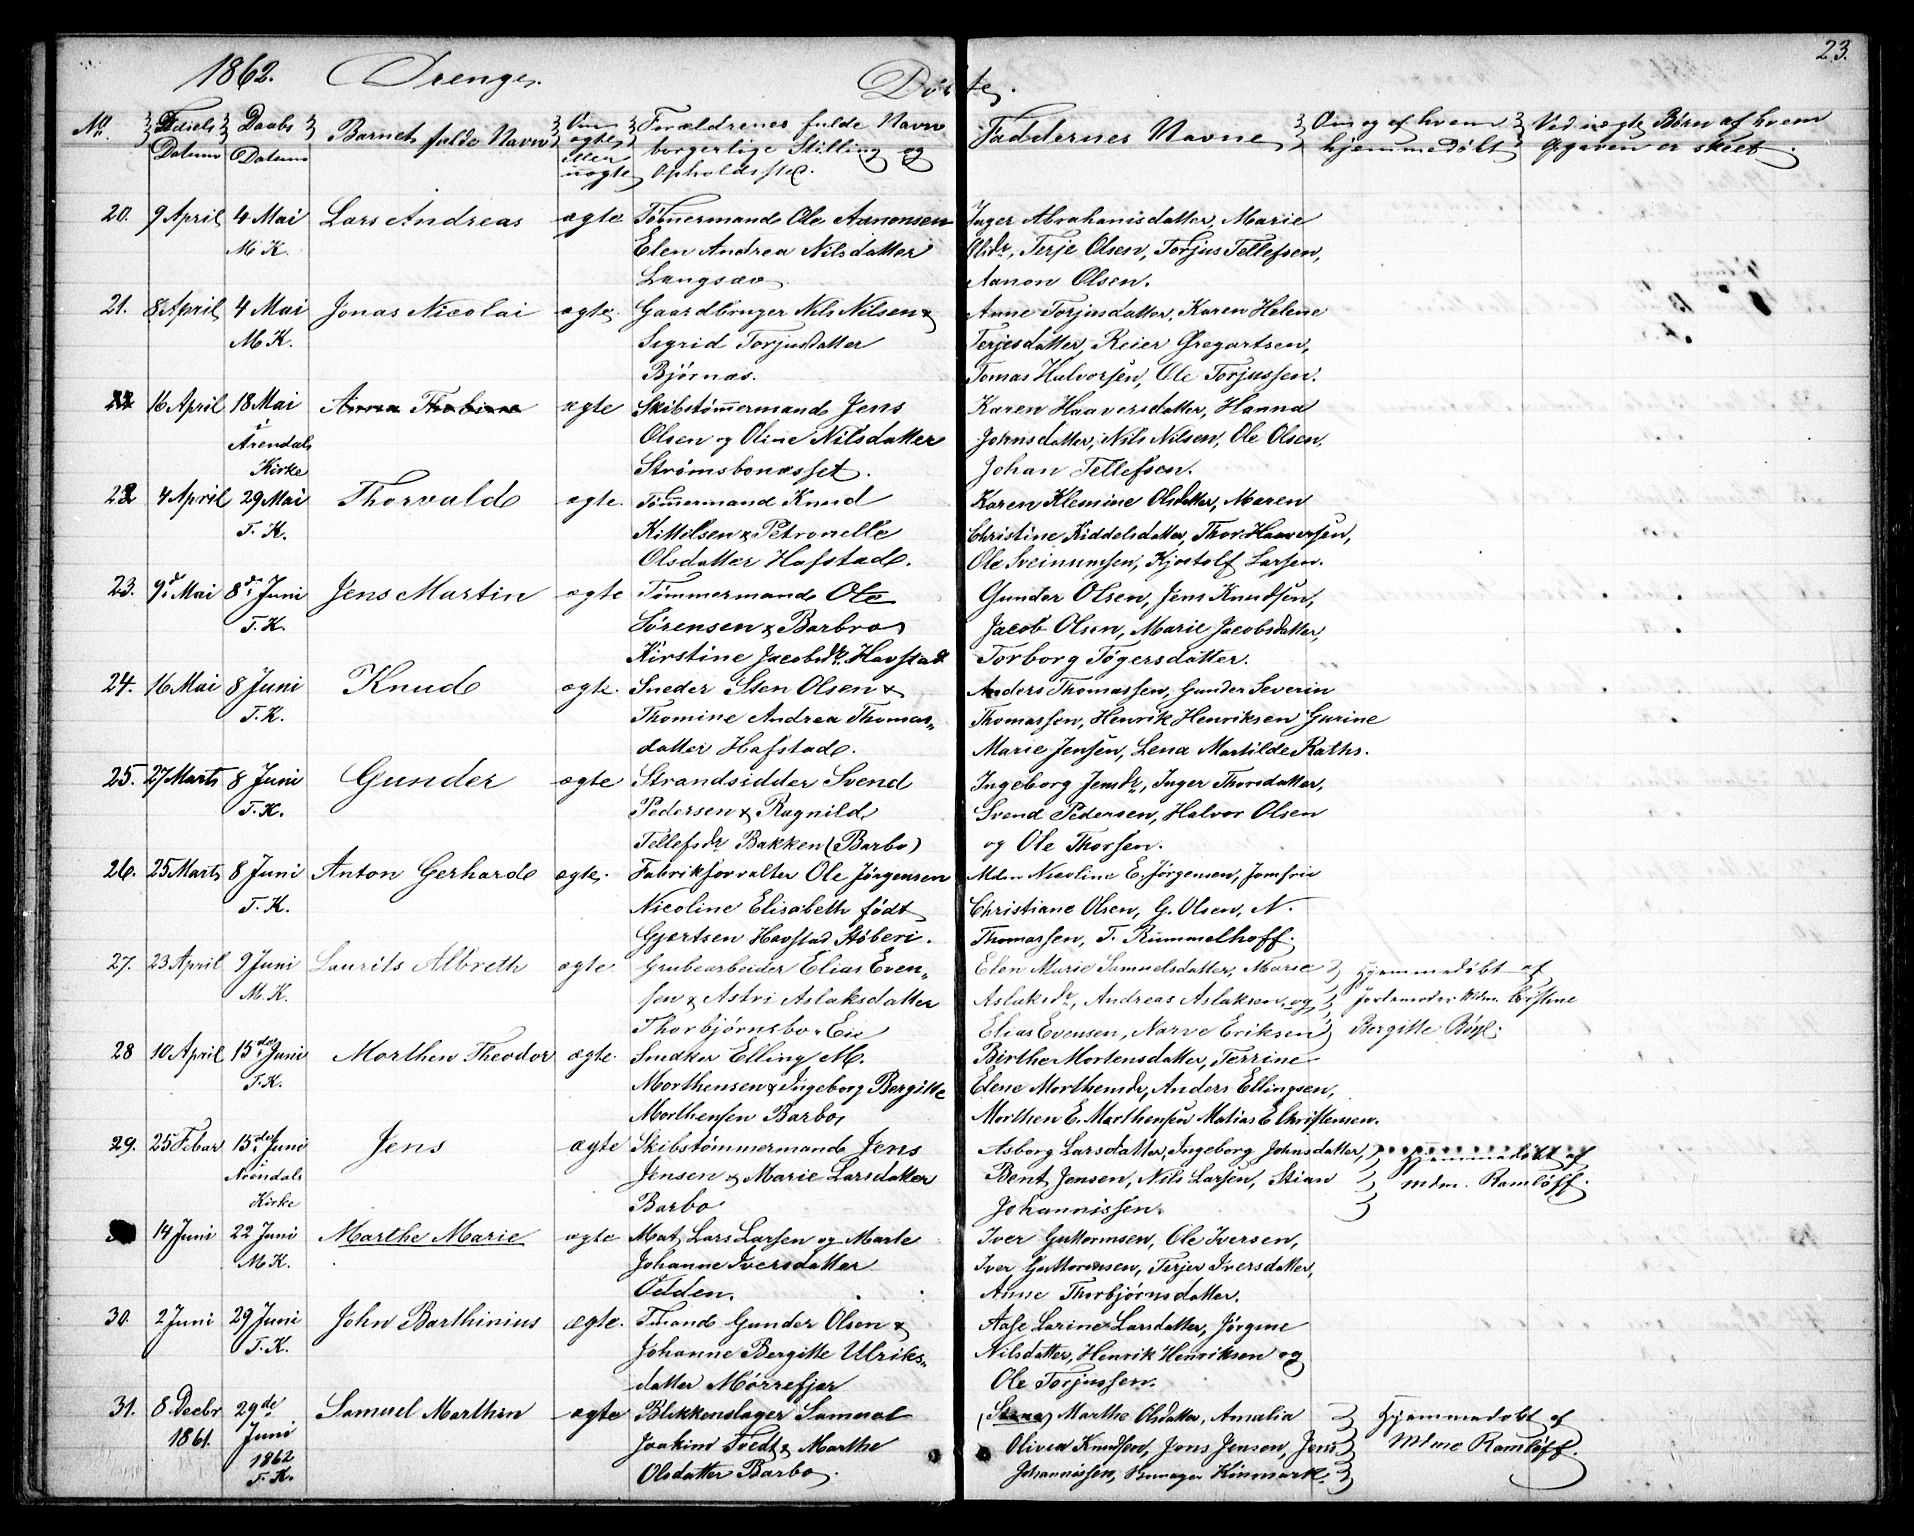 23.
1862. Drenge. Døbte.
No. Fødsels Datum Daabs Datum Barnets fulde Navn Om ægte eller uægte Forældrenes fulde Navn borgerlige Stilling og Opholdssted. Faddernes Navne Om og af hvem hjemmedøbt Ved uægte Børn af hvem Opgaven er skeet.
20. 9 April 4 Mai Lars Andreas ægte Tømmermand Ole Aanonsen Inger Abrahamsdatter, Marie
M. K. Elen Andrea Nilsdatter Olsdr, Terje Olsen, Torjus Tellefsen,
Langsæv Aanon Olsen.
21. 8 April 4 Mai Jonas Nicolai ægte. Gaardbruger Nils Nilsen & Anne Torjusdatter, Karen Helene
M. K. Sigrid Torjusdatter Terjesdatter, Reier Gregartsen,
Bjørnæs. Tomas Halvorsen, Ole Torjussen.
22 16 April 18 Mai Anna Thobine ægte Skibstømmermand Jens Karen Haaversdatter, Hanna
i Arendals Olsen og Oline Nilsdatter Johnsdatter, Nils Nilsen, Ole Olsen,
Kirke Strømsbonæsset. Johan Tellefsen.
22 4 April 29 Mai Thorvald ægte. Tømmermand Knud Karen Klemine Olsdatter, Maren
T. K. Kittilsen & Petronelle Christine Kiddelsdatter, Thor Haaversen,
Olsdatter Hafstad. Ole Sveinumsen, Kjostolf Larsen.
23. 9d Mai 8de Juni Jens Martin ægte Tømmermand Ole Gunder Olsen, Jens Knudsen,
T. K. Sørensen & Barbro Jacob Olsen, Marie Jacobsdatter,
Kirstine Jacobsdr. Havstad Torborg Tøgersdatter.
24. 16 Mai 8 Juni Knud ægte. Sneder Sten Olsen & Anders Thomassen, Gunder Severin
T. K. Thomine Andrea Thomas- Thomassen, Henrik Henriksen Gurine
datter Hafstad. Marie Jensen, Lena Martilde Raths.
25. 27 Marts 8 Juni Gunder ægte Strandsidder Svend Ingeborg Jensdr, Inger Thorsdatter,
T. K. Pedersen & Ragnild Svend Pedersen, Halvor Olsen
Tellefsdr Bakken (Barbo) og Ole Thorsen.
26. 25 Marts 8 Juni Anton Gerhard ægte. Fabrikforvalter Ole Jørgensen Mdm Nicoline E. Jørgensen, Jomfru
T. K. Nicoline Elisabeth født Christiane Olsen, G. Olsen, N.
Gjertsen Havstad Støberi. Thomassen, T. Rummelhoff.
27. 23 April 9 Juni Laurits Albreth ægte Grubearbeider Elias Even- Elen Marie Samuelsdatter, Marie Hjemmedøbt af
M. K. sen & Astri Aslaksdatter Aslaksdr, Andreas Aslaksen, og Jordemoder Mdm. Cristine
Thorbjørnsbo Eie Elias Evensen, Narve Eriksen Bergitte Bøyl.
28 10 April 15de Juni Morthen Theodor ægte Snedker Elling M. Birthe Mortensdatter, Terrine
T. K. Morthensen & Ingeborg Bergitte Elene Morthensdr, Anders Ellingsen,
Morthensen Barbo, Morthen E. Morthensen Matias E Christensen.
29. 25 Febuar 15de Juni Jens ægte Skibstømmermand Jens Asborg Larsdatter, Ingeborg Johnsdatter, Hjemmedøbt af
Arendals Jensen & Marie Larsdatter Bent Jensen, Nils Larsen, Stian Mdm. Ramløff.
Kirke Barbo Johannissen.
14 Juni 22 Juni Marthe Marie ægte Mat. Lars Larsen og Marte Iver Guttormsen, Ole Iversen,
M. K. Johanne Iversdatter Iver Guttormsen, Terjer Iversdatter,
Odden. Anne Thorbjørnsdatter.
30. 2 Juni 29 Juni John Barthinius ægte. Tmand Gunder Olsen & Aase Larine Larsdatter, Jørgine
T. K. Johanne Bergitte Ulriks- Nilsdatter, Henrik Henriksen og
datter Mørrefjær Ole Torjussen.
31. 8 Decbr 29de Samuel Marthin ægte Blikkenslager Samuel Marthe Olsdatter, Amalia Hjemmedøbt af
1861. Juni Joakim Tvedt & Marthe Olivia Knudsen, Jens Jensen, Jens Mdme Ramløff.
1862 T. K. Olsdatter Barbo. Johannissen, Kinmark.